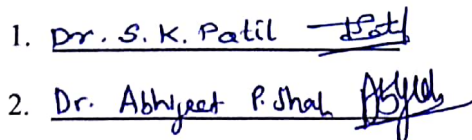 1. Dr. S. K. Patil
2. Dr. Abhijeet P. Shah